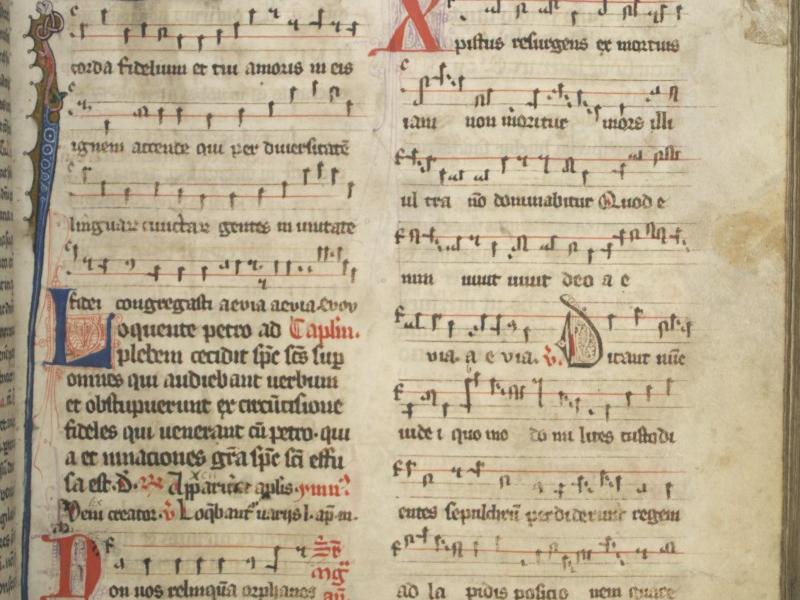 corda fidelium et tui amoris in eis
ignem accende qui per diuersitatē
linguar cunctar gentes in unitate
fidei congregasti aeuia aeuia euou
Loquente petro ad Caplm.
plebem cecidit spc scs sup
omnes qui audiebant uerbum
et obstupuerunt ex circūcisione
fideles qui uenerant cū petro qui
a et nationes grā spc sci effu
sa est. Apparuer aplis ymn
Veni creator. v Loqbant uarijs l. ap. m.
Non uos relinquā orphanos
Xpistus resurgens ex mortuis
iam non moritur mors illi
ul tra nō dominabitur Quod e
nim uiuit uiuit deo a e
via. a e via. v. Dicant nūc
iudei quo mo do mi lites custodi
entes sepulchrū perdiderunt regem
ad la pidis positio nem quare